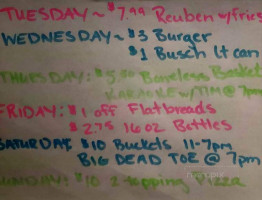 TUESDAY~ $7.99 Reuben w/fries
WEDNESDAY~ $3 Burger
$1 Busch Lt can
THURSDAY: $5.00 Boneless Basket
KARAOKE w/TIM @ 7pm
FRIDAY: $1 off Flatbreads
$2.75 16oz Bottles
SATURDAY: $10 Buckets 11-7pm
BIG DEAD TOE @ 7pm
SUNDAY: $10 2 topping Pizza